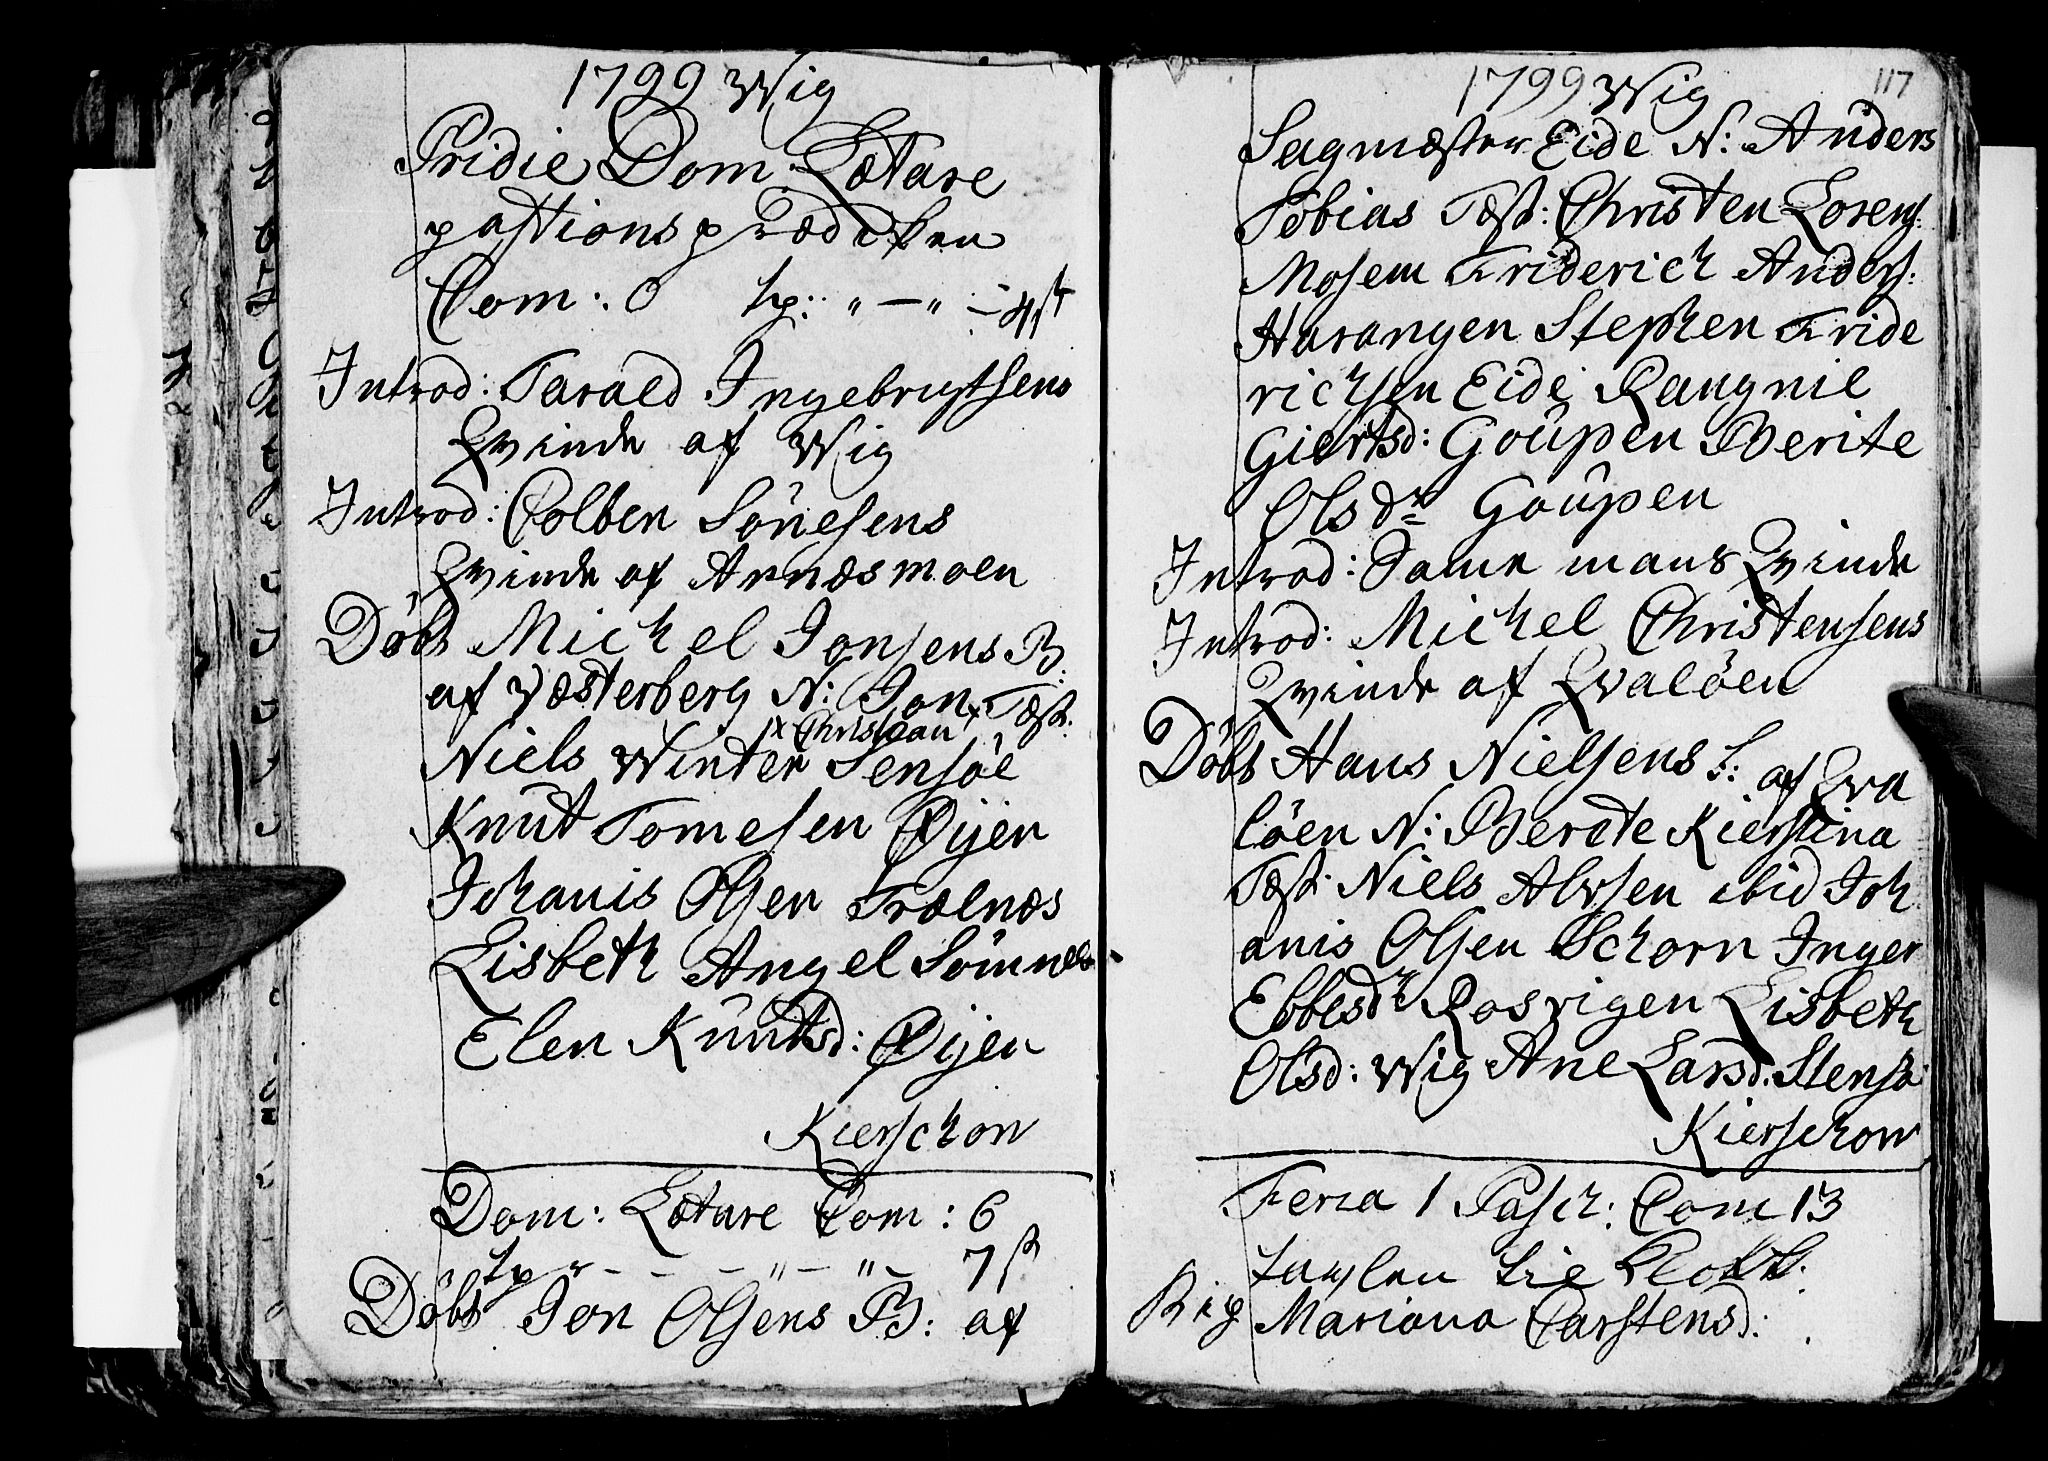 1799 Wig
Pridie Dom: Lætare
passionsprædiken
Com: 0 tp: „ — „ — 4 ß
Introd: Tarald Ingebrigtsens
Qvinde af Wig
Introd: Colben Sönesens
Qvinde af Arnæsmoen
Döbt Michel Jonsens B:
af Væsterberg N: Jon Test:
x Christian x
Niels Winter Sensöe
Knut Tomesen Øijen
Johanis Olsen Trælnæs
Lisbeth Angel Sömnes
Elen Knutsd: Øijen
Kierschow
Dom: Lætare Com: 6
tp - - - „ - „ - 7 ß
Döbt Jon Olsens B: af
1799 Wig
117
Sagmæster Eide N: Anders
Tobias Test: Christen Lorens:
Mosem Friderich Anders:
Harangen Stephen Fride
richsen Eide Raugnil
Giertsd: Goupen Berite
Olsdr Goupen
Introd: Same mans Qvinde
Introd: Michel Christensens
Qvinde af Qvalöen
Döbt Hans Nielsens b: af Qva
löen N: Berete Kierstina
Test: Niels Alvsen ibid Joh
anis Olsen Schorn Inger
Ebbesdr Rosvigen Lisbeth
Olsd: Wig Ane Larsd: Stensö
Kierschow
Feria 1 Pasch: Com 13
Mariana Carstensd: